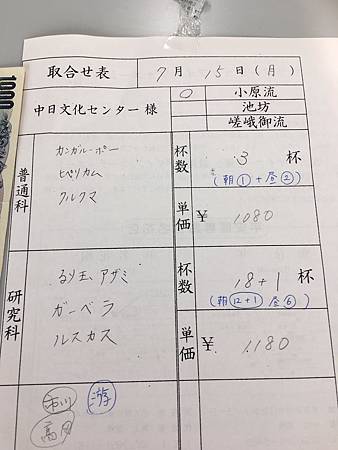 取合せ表
7月15日(月)
中日文化センター様
○ 小原流
池坊
嵯峨御流
普通科
カンガルーポー
ヒペリカム
クルクマ
杯数
3 杯
(朝① + 昼②)
単価
¥ 1080
研究科
るり玉アザミ
ガーベラ
ルスカス
杯数
18+1 杯
(朝⑫+1 昼⑥)
単価
¥ 1180
市川
游
1000